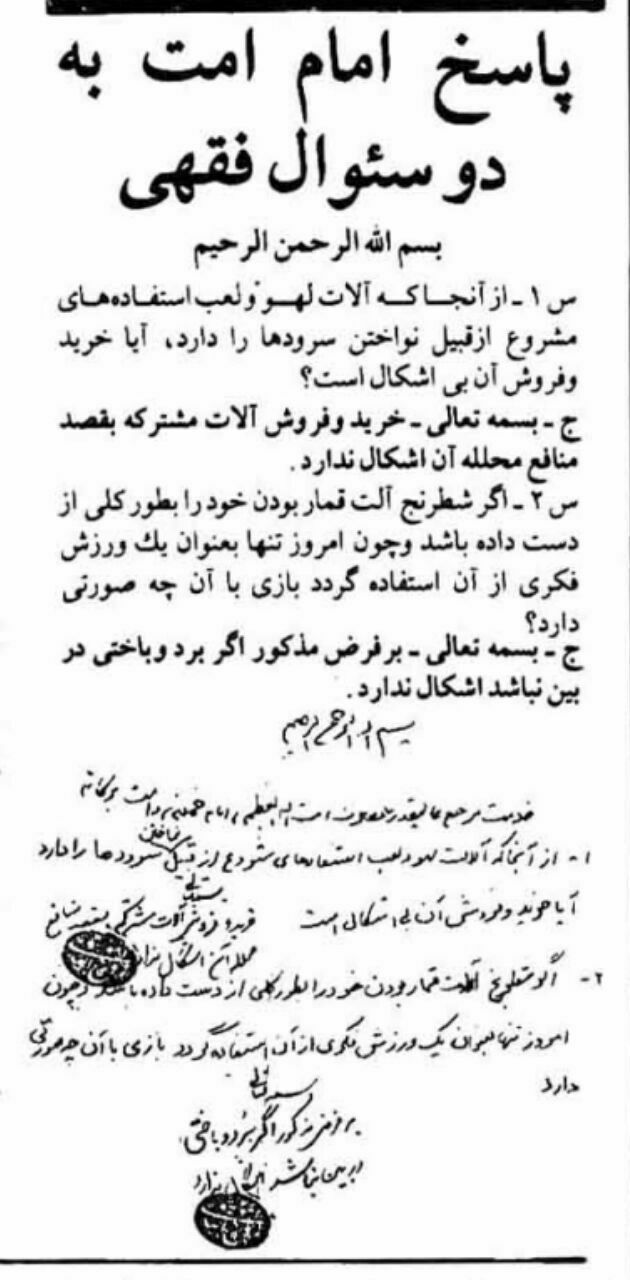 پاسخ امام امت به
دو سئوال فقهی
بسم الله الرحمن الرحیم
س ۱ ـ از آنجا که آلات لهو و لعب استفاده‌های
مشروع ازقبیل نواختن سرودها را دارد، آیا خرید
وفروش آن بی اشکال است؟
ج ـ بسمه تعالی ـ خرید وفروش آلات مشترکه بقصد
منافع محلله آن اشکال ندارد.
س ۲ ـ اگر شطرنج آلت قمار بودن خود را بطور کلی از
دست داده باشد وچون امروز تنها بعنوان یك ورزش
فکری از آن استفاده گردد بازی با آن چه صورتی
دارد؟
ج ـ بسمه تعالی ـ برفرض مذکور اگر برد وباختی در
بین نباشد اشکال ندارد.
بسم الله الرحمن الرحیم
خدمت مرجع عالیقدر امام خمینی دامت برکاته
۱- از آنجا که آلات لهو و لعب استفاده‌های مشروع از قبیل نواختن سرودها را دارد
آیا خرید و فروش آن بی اشکال است
بسمه تعالی
خرید و فروش آلات مشترکه بقصد منافع
محلله آن اشکال ندارد
۲- اگر شطرنج آلت قمار بودن خود را بطور کلی از دست داده باشد و چون
امروز تنها بعنوان یک ورزش فکری از آن استفاده گردد بازی با آن چه صورتی
دارد
بسمه تعالی
بر فرض مذکور اگر برد و باختی
در بین نباشد اشکال ندارد